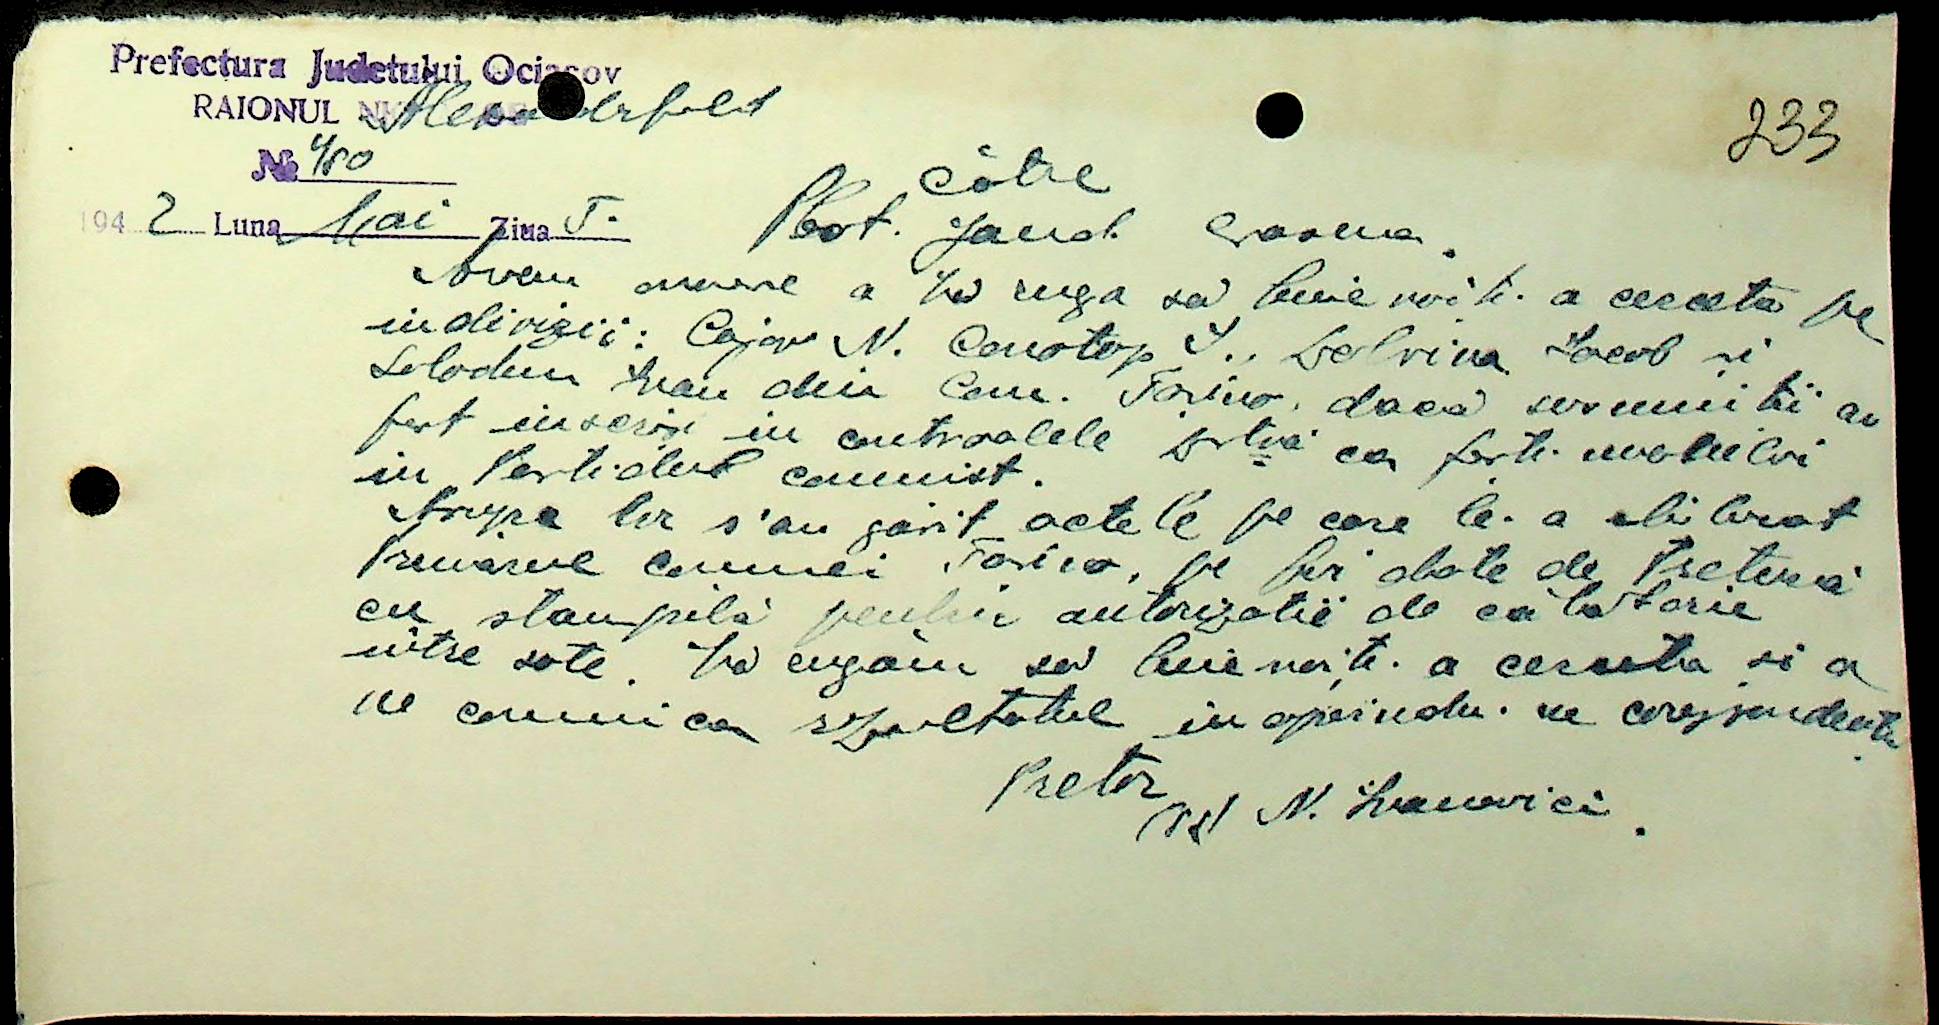 Prefectura Judetului Ociacov
RAIONUL Alexanderfeld
233
№ 480
Către
194 2 Luna Mai Ziua 5.
Plot. Jand. Crasna.
Avem onoare a Vă ruga să bine voiți a cerceta pe
indivizii: Cajar N. Conotop I., Iacob și
Solodun Ivan din Com. Tarino, dacă sus numiții au
fost inscriși in controalele Dstră ca foști
in Partidul comunist.
Asupra lor s'au găsit actele pe care le-a eliberat
Primarul comunei Tarino, pe file date de Pretură
cu stampilă pentru autorizatii de călătorie
intre sate. Vă rugăm să bine voiți a cerceta si a
ne comunica rezultatul inapoindu-ne corespondenta.
Pretor
(ss) N. Ivanovici.